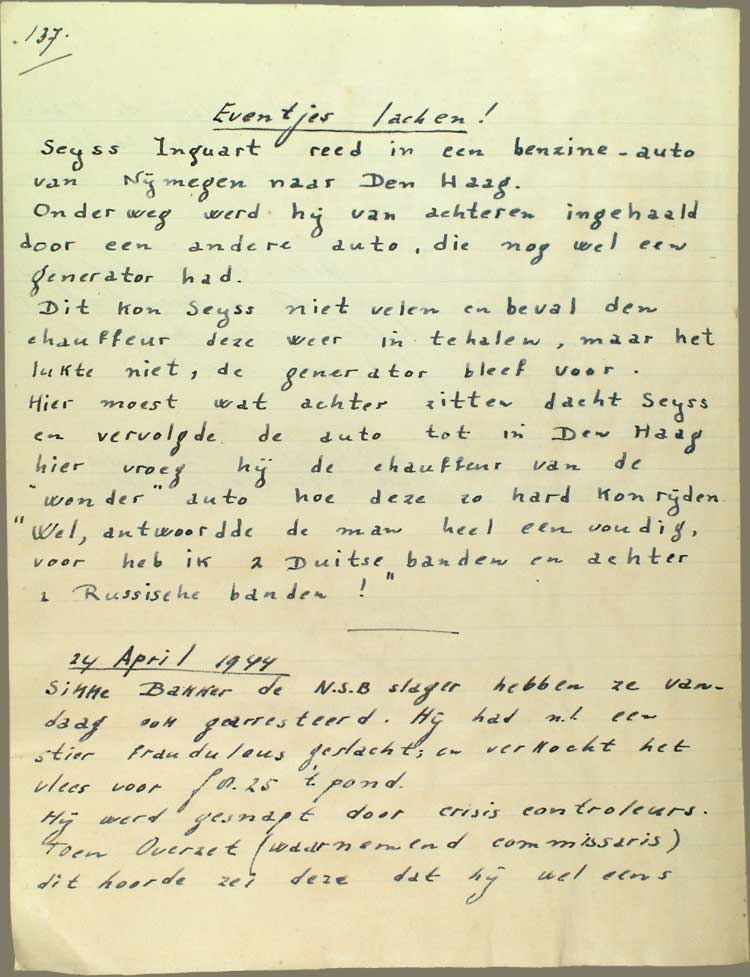 137.
Eventjes lachen!
Seyss Inquart reed in een benzine-auto
van Nijmegen naar Den Haag.
Onderweg werd hij van achteren ingehaald
door een andere auto, die nog wel een
generator had.
Dit kon Seyss niet velen en beval den
chauffeur deze weer in te halen, maar het
lukte niet, de generator bleef voor.
Hier moest wat achter zitten dacht Seyss
en vervolgde de auto tot in Den Haag
hier vroeg hij de chauffeur van de
"wonder" auto hoe deze zo hard kon rijden
"Wel, antwoordde de man heel een voudig,
voor heb ik 2 Duitse banden en achter
2 Russische banden!"
24 April 1944
Sikke Bakker de N.S.B slager hebben ze van-
daag ook gearresteerd. Hij had n.l. een
stier fraudulous geslacht, en verkocht het
vlees voor 25 't pond.
Hij werd gesnapt door crisis controleurs.
Toen Overzet (waarnemend commissaris)
dit hoorde zei deze dat hij wel eens